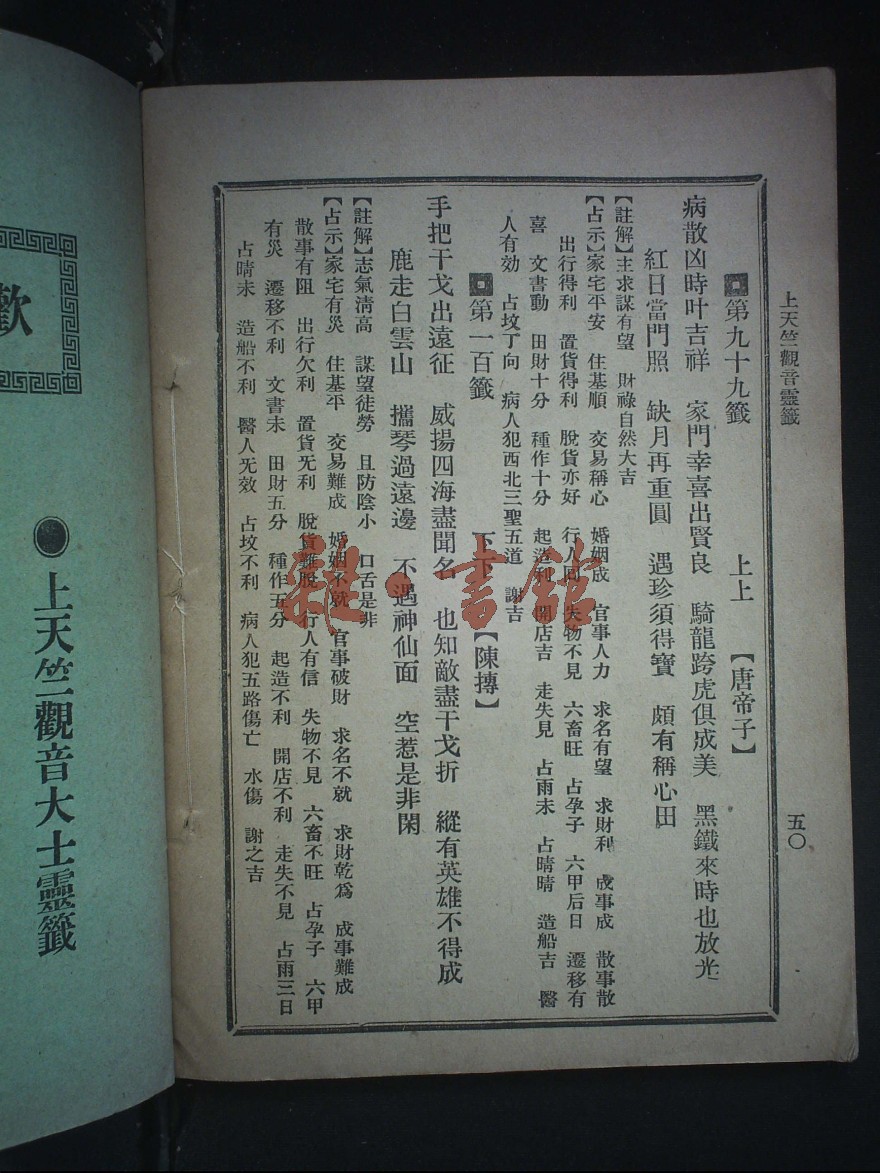 上天竺觀音靈籤
五〇
第九十九籤 上上 【唐帝子】
病散凶時叶吉祥 家門幸喜出賢良 騎龍跨虎俱成美 黑鐵來時也放光
紅日當門照 缺月再重圓 遇珍須得寶 頗有稱心田
【註解】主求謀有望 財祿自然大吉
【占示】家宅平安 住基順 交易稱心 婚姻成 官事人力 求名有望 求財利 成事成 散事散
出行得利 置貨得利 脫貨亦好 行人回 失物不見 六畜旺 占孕子 六甲后日 遷移有
喜 文書動 田財十分 種作十分 起造利 開店吉 走失見 占雨未 占晴晴 造船吉 醫
人有効 占坟丁向 病人犯西北三聖五道 謝吉
第一百籤 下下 【陳摶】
手把干戈出遠征 威揚四海盡聞名 也知敵盡干戈折 縱有英雄不得成
鹿走白雲山 攜琴過遠邊 不遇神仙面 空惹是非閑
【註解】志氣淸高 謀望徒勞 且防陰小 口舌是非
【占示】家宅有災 住基平 交易難成 婚姻不就 官事破財 求名不就 求財乾爲 成事難成
散事有阻 出行欠利 置貨无利 脫貨難脫 行人有信 失物不見 六畜不旺 占孕子 六甲
有災 遷移不利 文書未 田財五分 種作五分 起造不利 開店不利 走失不見 占雨三日
占晴未 造船不利 醫人无效 占坟不利 病人犯五路傷亡 水傷 謝之吉
歡
上天竺觀音大士靈籤
雜·書館